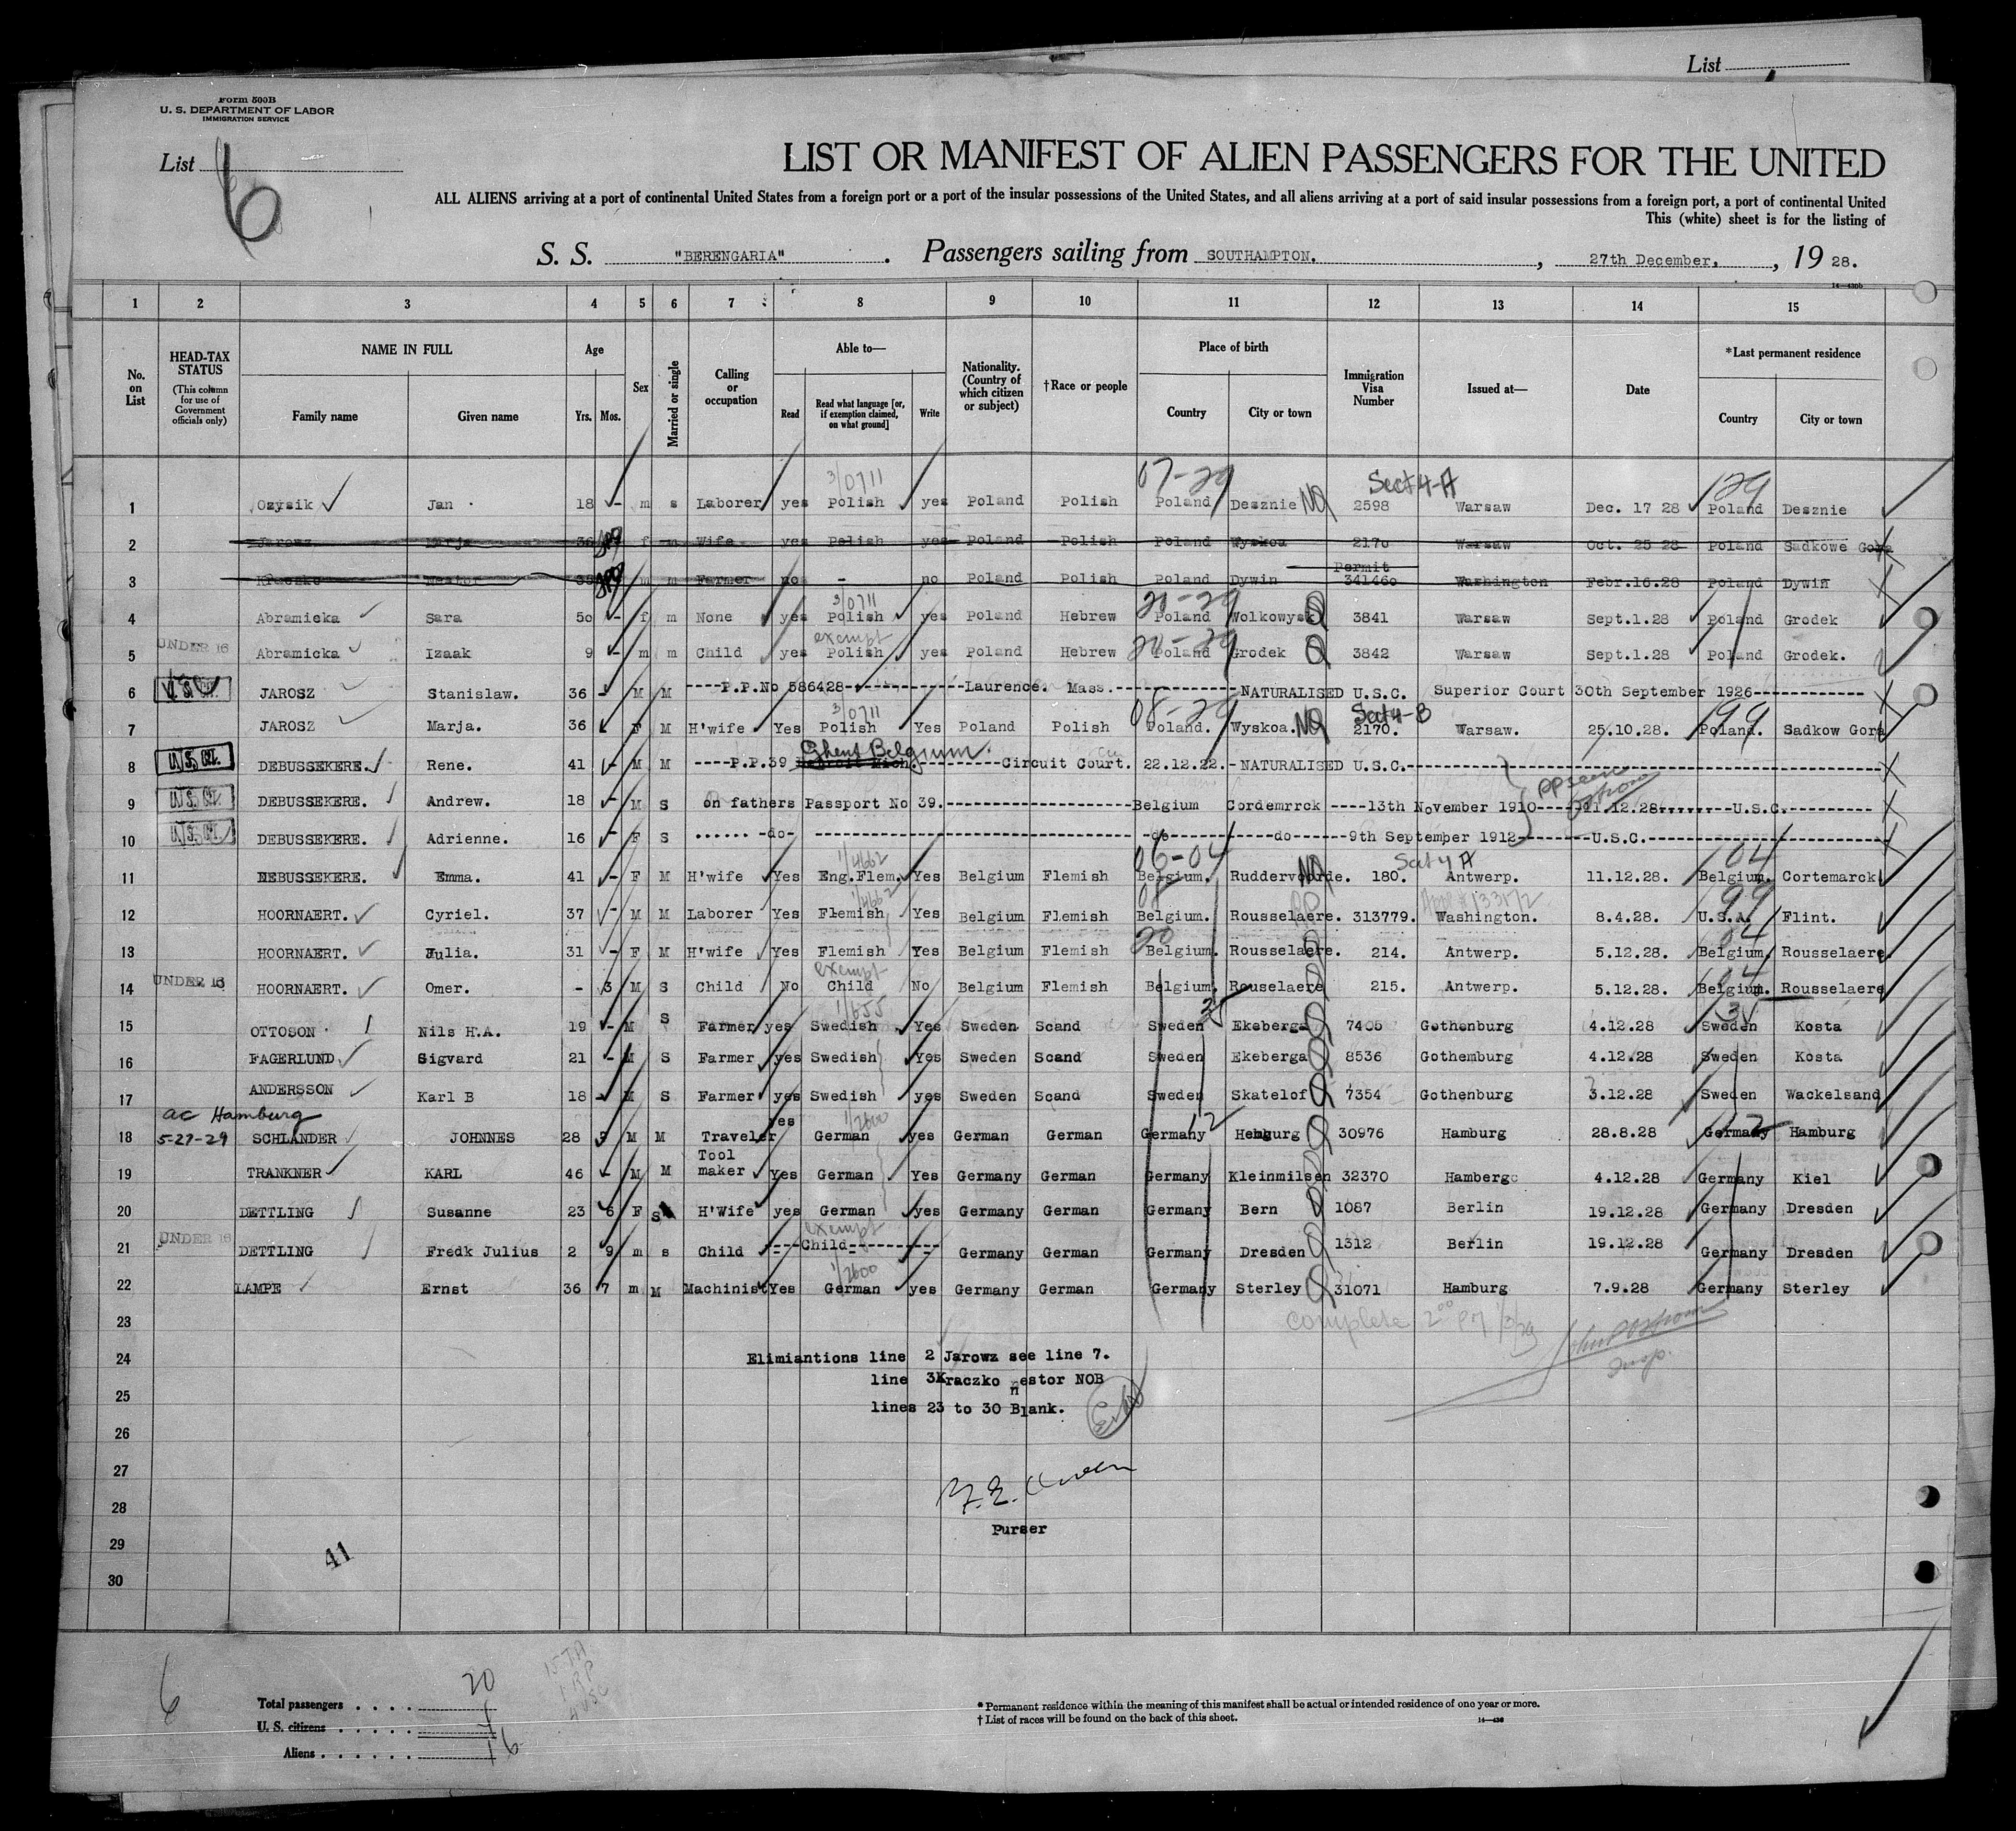 List
Form 500B
U. S. DEPARTMENT OF LABOR
IMMIGRATION SERVICE
List 6
LIST OR MANIFEST OF ALIEN PASSENGERS FOR THE UNITED
ALL ALIENS arriving at a port of continental United States from a foreign port or a port of the insular possessions of the United States, and all aliens arriving at a port of said insular possessions from a foreign port, a port of continental United
This (white) sheet is for the listing of
S. S. "BERENGARIA". Passengers sailing from SOUTHAMPTON., 27th December., 19 28.
14—430b
1 2 3 4 5 6 7 8 9 10 11 12 13 14 15
No. on List HEAD-TAX STATUS (This column for use of Government officials only) NAME IN FULL Family name Given name Age Yrs. Mos. Sex Married or single Calling or occupation Able to— Read Read what language [or, if exemption claimed, on what ground] Write Nationality. (Country of which citizen or subject) †Race or people Place of birth Country City or town Immigration Visa Number Issued at— Date *Last permanent residence Country City or town
3/0711 07-29 Sect 4-A 129
1 Ozysik Jan 18 - m s Laborer yes Polish yes Poland Polish Poland Desznie NQ 2598 Warsaw Dec. 17 28 Poland Desznie
2 Jarowz Marja 36 f m Wife yes Polish yes Poland Polish Poland Wyskoa 2170 Warsaw Oct. 25 28 Poland Sadkowe Gora
Permit
3 Kraczko Nestor 35 m m Farmer no - no Poland Polish Poland Dywin 341460 Washington Febr.16.28 Poland Dywin
3/0711 20-29
4 Abramicka Sara 50 - f m None yes Polish yes Poland Hebrew Poland Wolkowysk 3841 Warsaw Sept.1.28 Poland Grodek
UNDER 16 exempt 20-29
5 Abramicka Izaak 9 - m m Child yes Polish yes Poland Hebrew Poland Grodek 3842 Warsaw Sept.1.28 Poland Grodek.
6 JAROSZ Stanislaw. 36 - M M ----P.P.No 586428-----------Laurence. Mass.------------NATURALISED U.S.C. Superior Court 30th September 1926------------
3/0711 08-29 Sect 4-B 99
7 JAROSZ Marja. 36 F M H'wife Yes Polish Yes Poland Polish Poland. Wyskoa. NQ 2170. Warsaw. 25.10.28. Poland. Sadkow Gora
Ghent Belgium
8 U.S. Cit. DEBUSSEKERE. Rene. 41 - M M ----P.P.39 Detroit Mich.---------Circuit Court. 22.12.22.-NATURALISED U.S.C.-----------
9 U.S. Cit. DEBUSSEKERE. Andrew. 18 - M S on fathers Passport No 39.--------------------Belgium Cordemrrck ----13th November 1910----11.12.28.......--U.S.C.----------
10 U.S. Cit. DEBUSSEKERE. Adrienne. 16 - F S ...... -do- ---------------------- -do-----------do-----9th September 1912--------U.S.C.-----------
1/4662 06-04 Sect 4 A 04
11 DEBUSSEKERE. Emma. 41 - F M H'wife Yes Eng.Flem. Yes Belgium Flemish Belgium. Ruddervoorde. NQ 180. Antwerp. 11.12.28. Belgium. Cortemarck
1/4662 08 99
12 HOORNAERT. Cyriel. 37 - M M Laborer Yes Flemish Yes Belgium Flemish Belgium. Rousselaere. 313779. Washington. 8.4.28. U.S.A. Flint.
20 04
13 HOORNAERT. Julia. 31 - F M H'wife Yes Flemish Yes Belgium Flemish Belgium. Rousselaere. 214. Antwerp. 5.12.28. Belgium. Rousselaere.
UNDER 16 exempt 04
14 HOORNAERT. Omer. - 3 M S Child No Child No Belgium Flemish Belgium. Rouselaere 215. Antwerp. 5.12.28. Belgium. Rousselaere
1/655 35
15 OTTOSON Nils H.A. 19 - M S Farmer yes Swedish Yes Sweden Scand Sweden Ekeberga 7405 Gothenburg 4.12.28 Sweden Kosta
16 FAGERLUND Sigvard 21 - M S Farmer yes Swedish Yes Sweden Scand Sweden Ekeberga 8536 Gothemburg 4.12.28 Sweden Kosta
17 ANDERSSON Karl B 18 - M S Farmer yes Swedish yes Sweden Scand Sweden Skatelof 7354 Gothenburg 3.12.28 Sweden Wackelsand
ac Hamburg 1/2600 12
18 5-27-29 SCHLANDER JOHNNES 28 9 M M Traveler yes German yes German German Germany Hemburg 30976 Hamburg 28.8.28 Germany Hamburg
19 TRANKNER KARL 46 - M M Tool maker Yes German Yes Germany German Germany Kleinmilsen 32370 Hamberg 4.12.28 Germany Kiel
20 DETTLING Susanne 23 6 F S H'Wife yes German yes Germany German Germany Bern 1087 Berlin 19.12.28 Germany Dresden
UNDER 16 exempt
21 DETTLING Fredk Julius 2 9 m s Child ----Child---------- Germany German Germany Dresden 1312 Berlin 19.12.28 Germany Dresden
1/2600
22 LAMPE Ernst 36 7 m M Machinist Yes German yes Germany German Germany Sterley 31071 Hamburg 7.9.28 Germany Sterley
23 complete 2 00 PM 1/3/29
24 Elimiantions line 2 Jarowz see line 7.
Insp.
25 line 3Kraczko nestor NOB
lines 23 to 30 Blank.
26
27
28
Purser
29
41
30
6
15 TA
1 RP
4 USC
Total passengers . . . . . 20
U. S. citizens . . . . . 4
Aliens . . . . . . 16
* Permanent residence within the meaning of this manifest shall be actual or intended residence of one year or more.
† List of races will be found on the back of this sheet.
14—430